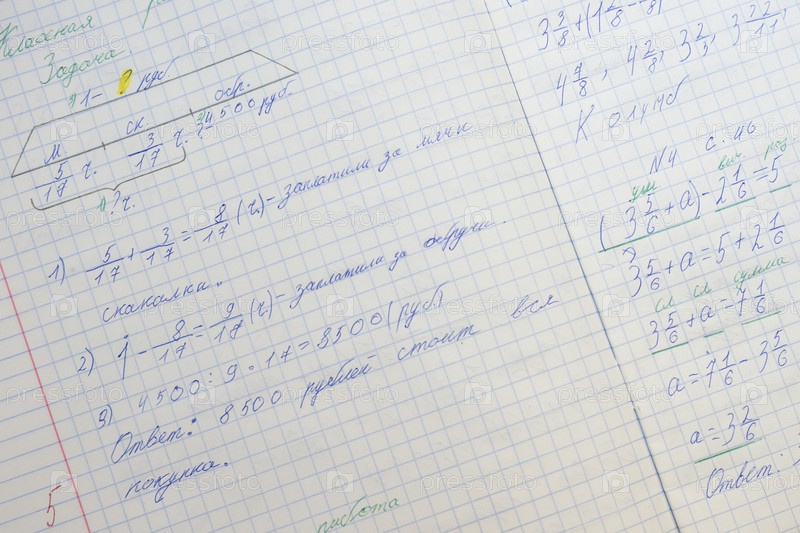 Классная
Задача.
1- ? руб.
М СК. обр.
5/17 ч. 3/17 ч. ? 4500 руб
? ч.
1) 5/17 + 3/17 = 8/17 (ч.) - заплатили за мячи
скакалки.
2) 1 - 8/17 = 9/17 (ч) - заплатили за обручи.
3) 4500 : 9 · 17 = 8500 (руб)
Ответ: 8500 рублей стоит вся
покупка.
5
работа
4 7/8, 4 2/8, 3 2/3,
Колумб
N4 с. 46
ум выч. раз
(3 5/6 + a) - 2 1/6 = 5
3 5/6 + a = 5 + 2 1/6
сл сл сумма
3 5/6 + a = 7 1/6
a = 7 1/6 - 3 5/6
a = 3 2/6
Ответ:
pressfoto